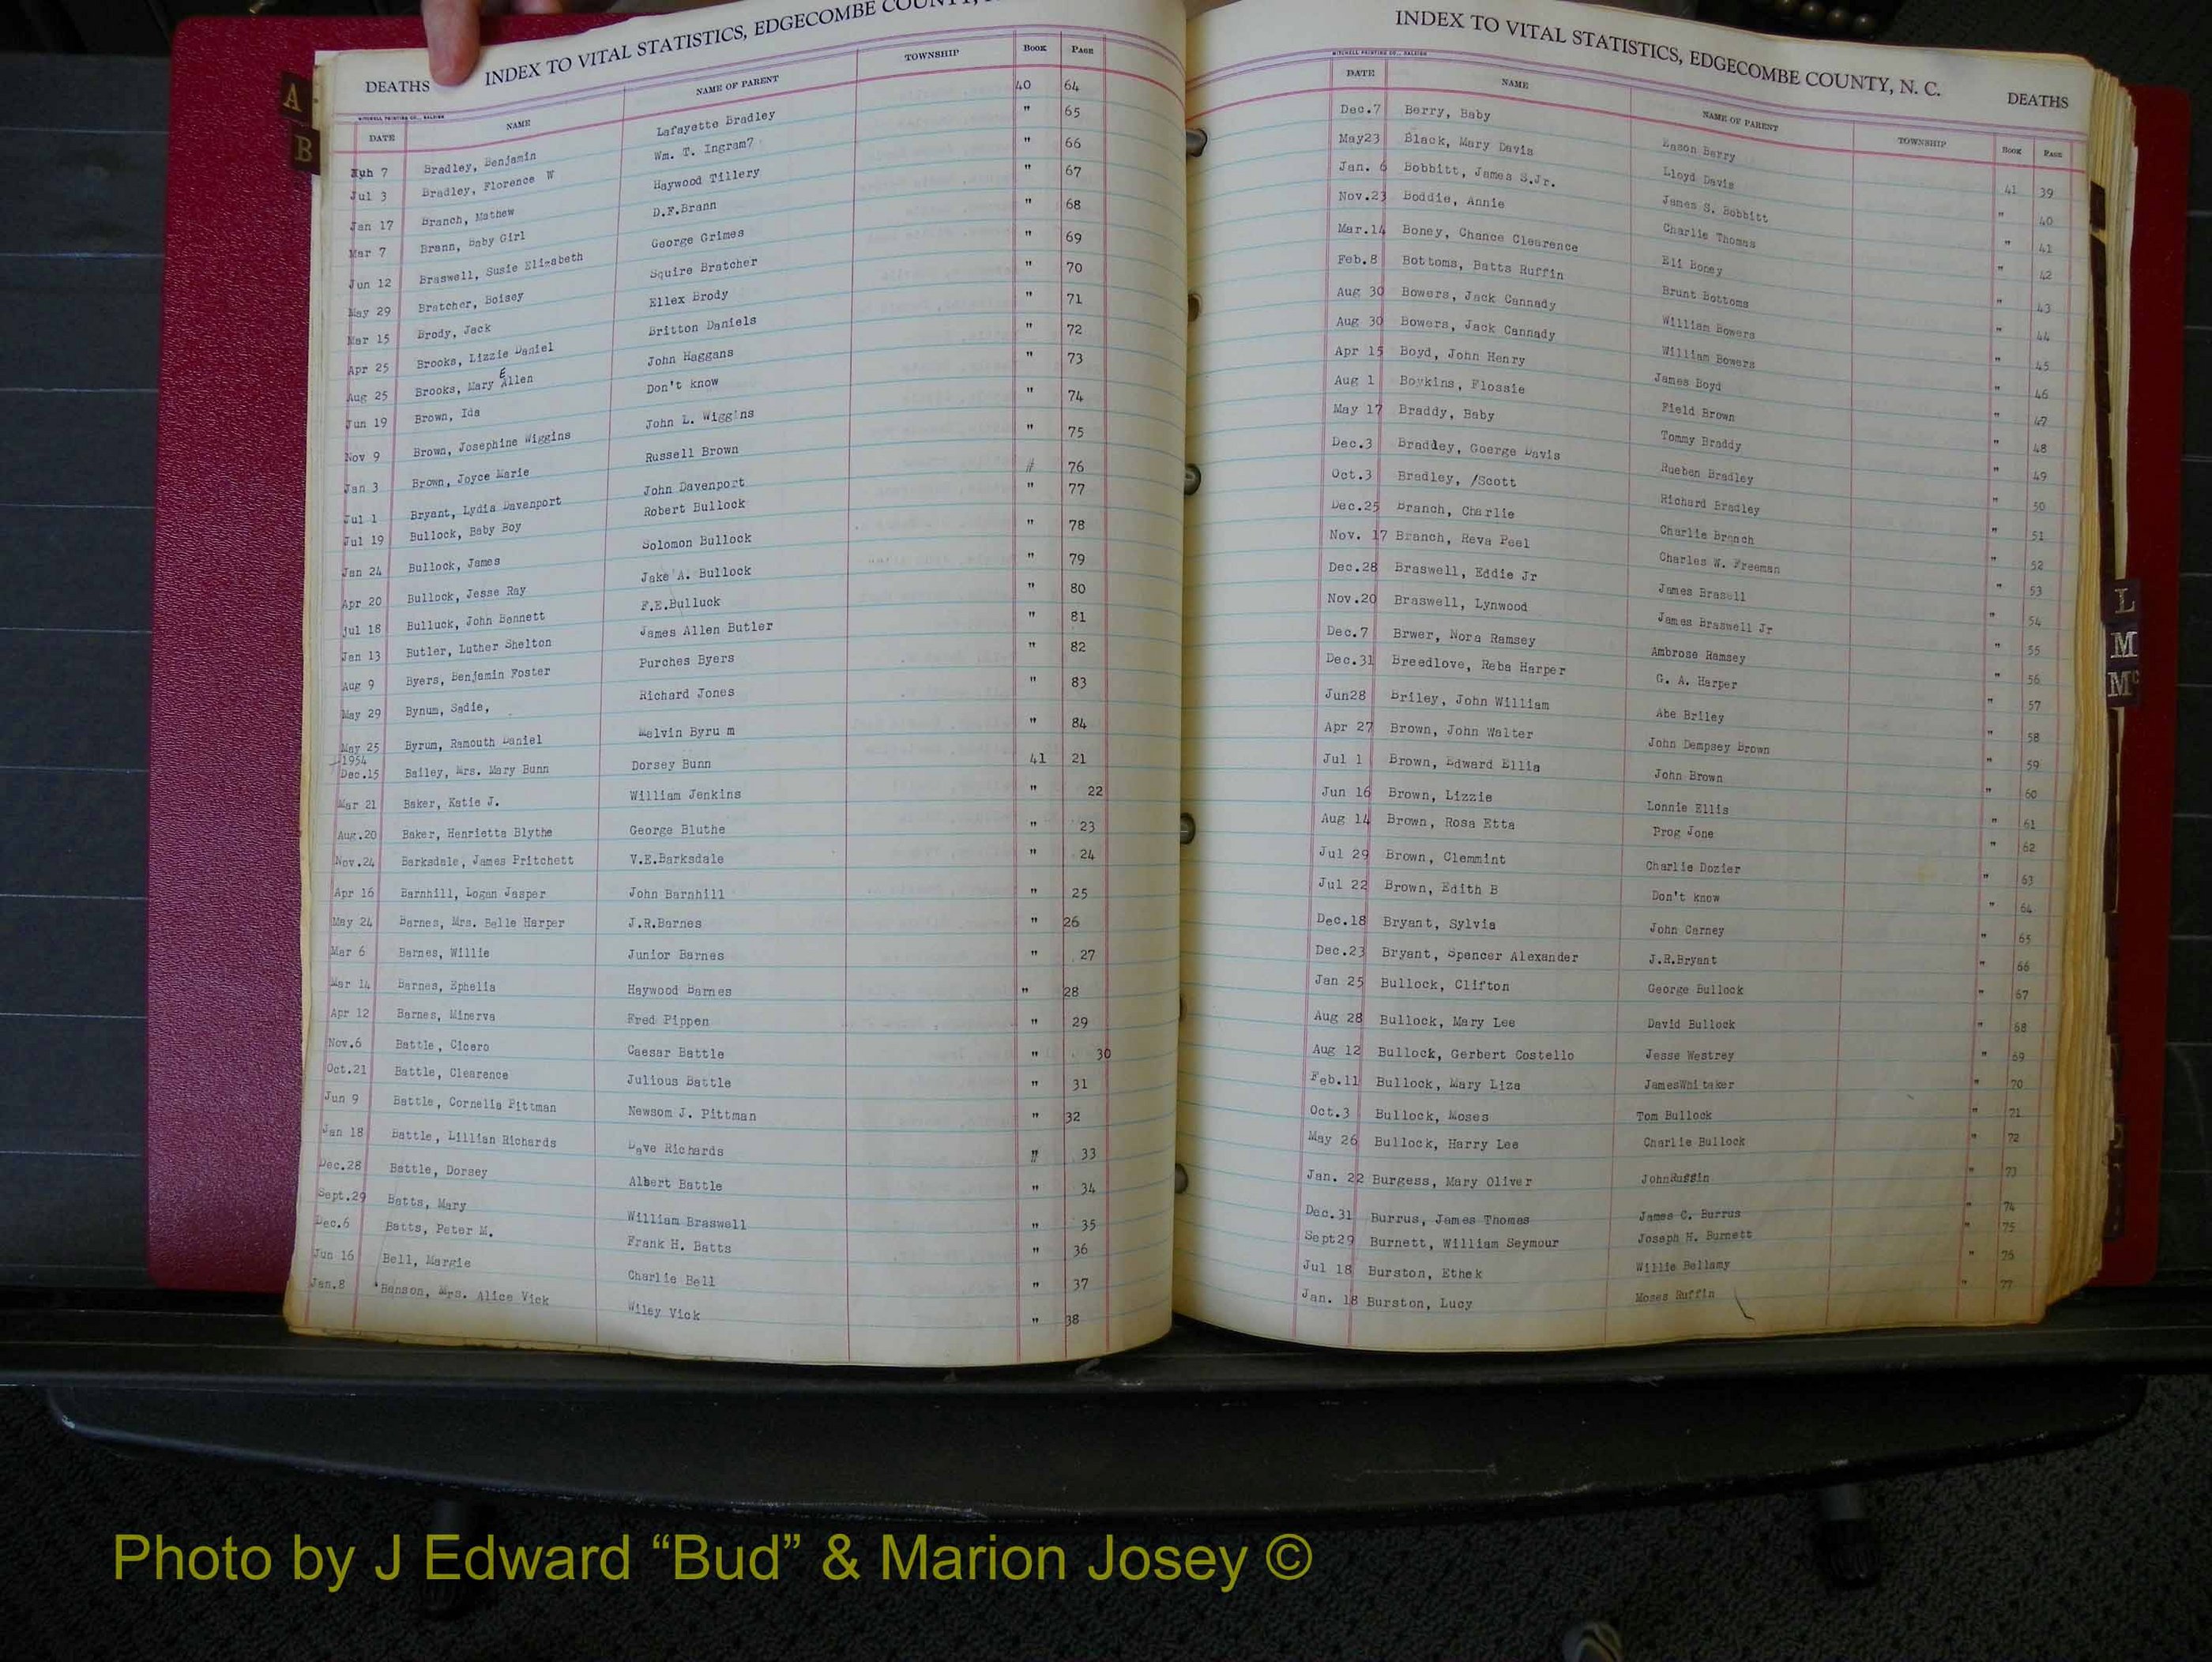 A
B
DEATHS INDEX TO VITAL STATISTICS, EDGECOMBE COUNTY,
MITCHELL PRINTING CO., RALEIGH
DATE NAME NAME OF PARENT TOWNSHIP BOOK PAGE
7 Bradley, Benjamin Lafayette Bradley 40 64
Jul 3 Bradley, Florence W Wm. T. Ingram? " 65
Jan 17 Branch, Mathew Haywood Tillery " 66
Mar 7 Brann, Baby Girl D.F.Brann " 67
Jun 12 Braswell, Susie Elizabeth George Grimes " 68
May 29 Bratcher, Boisey Squire Bratcher " 69
Mar 15 Brody, Jack Ellex Brody " 70
Apr 25 Brooks, Lizzie Daniel Britton Daniels " 71
Aug 25 Brooks, Mary Allen John Haggans " 72
Jun 19 Brown, Ida Don't know " 73
Nov 9 Brown, Josephine Wiggins John L. Wiggins " 74
Jan 3 Brown, Joyce Marie Russell Brown " 75
Jul 1 Bryant, Lydia Davenport John Davenport " 76
Jul 19 Bullock, Baby Boy Robert Bullock " 77
Jan 24 Bullock, James Solomon Bullock " 78
Apr 20 Bullock, Jesse Ray Jake A. Bullock " 79
Jul 18 Bulluck, John Bennett F.E.Bulluck " 80
Jan 13 Butler, Luther Shelton James Allen Butler " 81
Aug 9 Byers, Benjamin Foster Purches Byers " 82
May 29 Bynum, Sadie, Richard Jones " 83
May 25 Byrum, Ramouth Daniel Melvin Byru m " 84
1954
Dec.15 Bailey, Mrs. Mary Bunn Dorsey Bunn 41 21
Mar 21 Baker, Katie J. William Jenkins " 22
Aug.20 Baker, Henrietta Blythe George Bluthe " 23
Nov.24 Barksdale, James Pritchett V.E.Barksdale " 24
Apr 16 Barnhill, Logan Jasper John Barnhill " 25
May 24 Barnes, Mrs. Belle Harper J.R.Barnes " 26
Mar 6 Barnes, Willie Junior Barnes " 27
Mar 14 Barnes, Ephelia Haywood Barnes " 28
Apr 12 Barnes, Minerva Fred Pippen " 29
Nov.6 Battle, Cicero Caesar Battle " 30
Oct.21 Battle, Clearence Julious Battle " 31
Jun 9 Battle, Cornelia Pittman Newsom J. Pittman " 32
Jan 18 Battle, Lillian Richards Dave Richards " 33
Dec.28 Battle, Dorsey Albert Battle " 34
Sept.29 Batts, Mary William Braswell " 35
Dec.6 Batts, Peter M. Frank H. Batts " 36
Jun 16 Bell, Margie Charlie Bell " 37
Jan.8 Benson, Mrs. Alice Vick Wiley Vick " 38
INDEX TO VITAL STATISTICS, EDGECOMBE COUNTY, N. C. DEATHS
MITCHELL PRINTING CO., RALEIGH
DATE NAME NAME OF PARENT TOWNSHIP BOOK PAGE
Dec.7 Berry, Baby Eason Berry 41 39
May23 Black, Mary Davis Lloyd Davis " 40
Jan. 6 Bobbitt, James S.Jr. James S. Bobbitt " 41
Nov.23 Boddie, Annie Charlie Thomas " 42
Mar.14 Boney, Chance Clearence Eli Boney " 43
Feb.8 Bottoms, Batts Ruffin Brunt Bottoms " 44
Aug 30 Bowers, Jack Cannady William Bowers " 45
Aug 30 Bowers, Jack Cannady William Bowers " 46
Apr 15 Boyd, John Henry James Boyd " 47
Aug 1 Boykins, Flossie Field Brown " 48
May 17 Braddy, Baby Tommy Braddy " 49
Dec.3 Bradley, Goerge Davis Rueben Bradley " 50
Oct.3 Bradley, /Scott Richard Bradley " 51
Dec.25 Branch, Charlie Charlie Branch " 52
Nov. 17 Branch, Reva Peel Charles W. Freeman " 53
Dec.28 Braswell, Eddie Jr James Brasell " 54
Nov.20 Braswell, Lynwood James Braswell Jr " 55
Dec.7 Brwer, Nora Ramsey Ambrose Ramsey " 56
Dec.31 Breedlove, Reba Harper G. A. Harper " 57
Jun28 Briley, John William Abe Briley " 58
Apr 27 Brown, John Walter John Dempsey Brown " 59
Jul 1 Brown, Edward Ellis John Brown " 60
Jun 16 Brown, Lizzie Lonnie Ellis " 61
Aug 14 Brown, Rosa Etta Prog Jone " 62
Jul 29 Brown, Clemmint Charlie Dozier " 63
Jul 22 Brown, Edith B Don't know " 64
Dec.18 Bryant, Sylvia John Carney " 65
Dec.23 Bryant, Spencer Alexander J.R.Bryant " 66
Jan 25 Bullock, Clifton George Bullock " 67
Aug 28 Bullock, Mary Lee David Bullock " 68
Aug 12 Bullock, Gerbert Costello Jesse Westrey " 69
Feb.11 Bullock, Mary Liza JamesWhitaker " 70
Oct.3 Bullock, Moses Tom Bullock " 71
May 26 Bullock, Harry Lee Charlie Bullock " 72
Jan. 22 Burgess, Mary Oliver JohnRuffin " 73
Dec.31 Burrus, James Thomas James C. Burrus " 74
Sept29 Burnett, William Seymour Joseph H. Burnett " 75
Jul 18 Burston, Ethek Willie Bellamy " 76
Jan. 18 Burston, Lucy Moses Ruffin " 77
L
M
Mc
Photo by J Edward “Bud” & Marion Josey ©